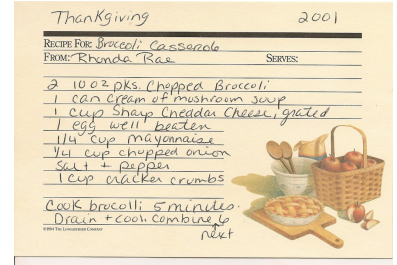 Thankgiving 2001
RECIPE FOR: Broccoli Casserole
FROM: Rhonda Rae SERVES:
2 10 oz pkgs. Chopped Broccoli
1 can cream of mushroom soup
1 cup sharp cheddar cheese, grated
1 egg well beaten
1/4 cup mayonnaise
1/4 cup chopped onion
salt + pepper
1 cup cracker crumbs
Cook brocolli 5 minutes.
Drain + cool. Combine 6
next
©1994 THE LONGABERGER COMPANY